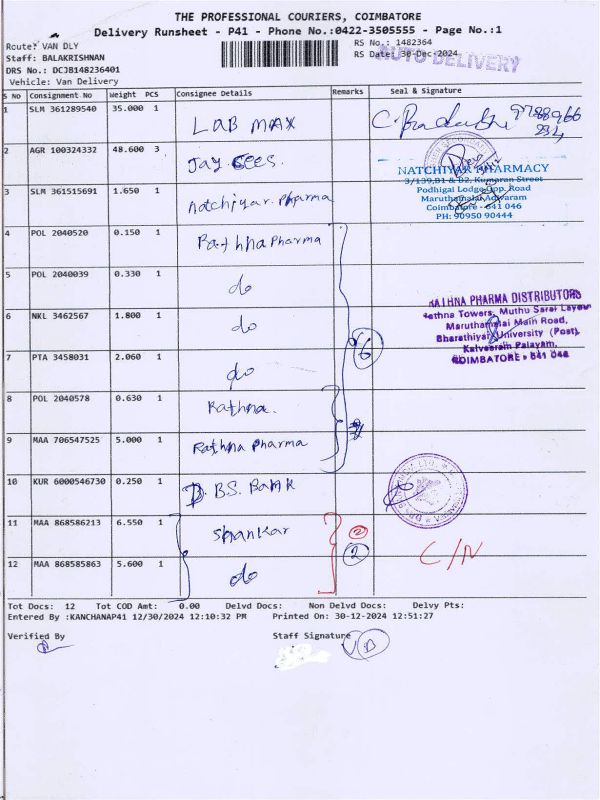 THE PROFESSIONAL COURIERS, COIMBATORE
Delivery Runsheet - P41 - Phone No.:0422-3505555 - Page No.:1
Route: VAN DLY
RS No.: 1482364
Staff: BALAKRISHNAN
RS Date: 30-Dec-2024
AUTO DELIVERY
DRS No.: DCJB148236401
Vehicle: Van Delivery
S No Consignment No Weight PCS Consignee Details Remarks Seal & Signature
1 SLM 361289540 35.000 1 LAB MAX 9788966
234
2 AGR 100324332 48.600 3 Jay Cees.
NATCHIYAR PHARMACY
3/139,B1 & B2, Kumaran Street
Podhigai Lodge Opp. Road
Maruthamalai Adivaram
Coimbatore - 641 046
PH: 90950 90444
3 SLM 361515691 1.650 1 Natchiyar. Pharma
4 POL 2040520 0.150 1 Rathna Pharma
5 POL 2040039 0.330 1 do
6 NKL 3462567 1.800 1 do
RATHNA PHARMA DISTRIBUTORS
Rathna Towers, Muthu Sarai Layout
Maruthamalai Main Road,
Bharathiyar University (Post),
Kalveeram Palayam,
COIMBATORE - 641 046
7 PTA 3458031 2.060 1 do 6
8 POL 2040578 0.630 1 Rathna.
9 MAA 706547525 5.000 1 Rathna Pharma
10 KUR 6000546730 0.250 1 D.BS. Bank
11 MAA 868586213 6.550 1 Shankar 2
2
C/N
12 MAA 868585863 5.600 1 do
Tot Docs: 12 Tot COD Amt: 0.00 Delvd Docs: Non Delvd Docs: Delvy Pts:
Entered By :KANCHANAP41 12/30/2024 12:10:32 PM Printed On: 30-12-2024 12:51:27
Verified By Staff Signature